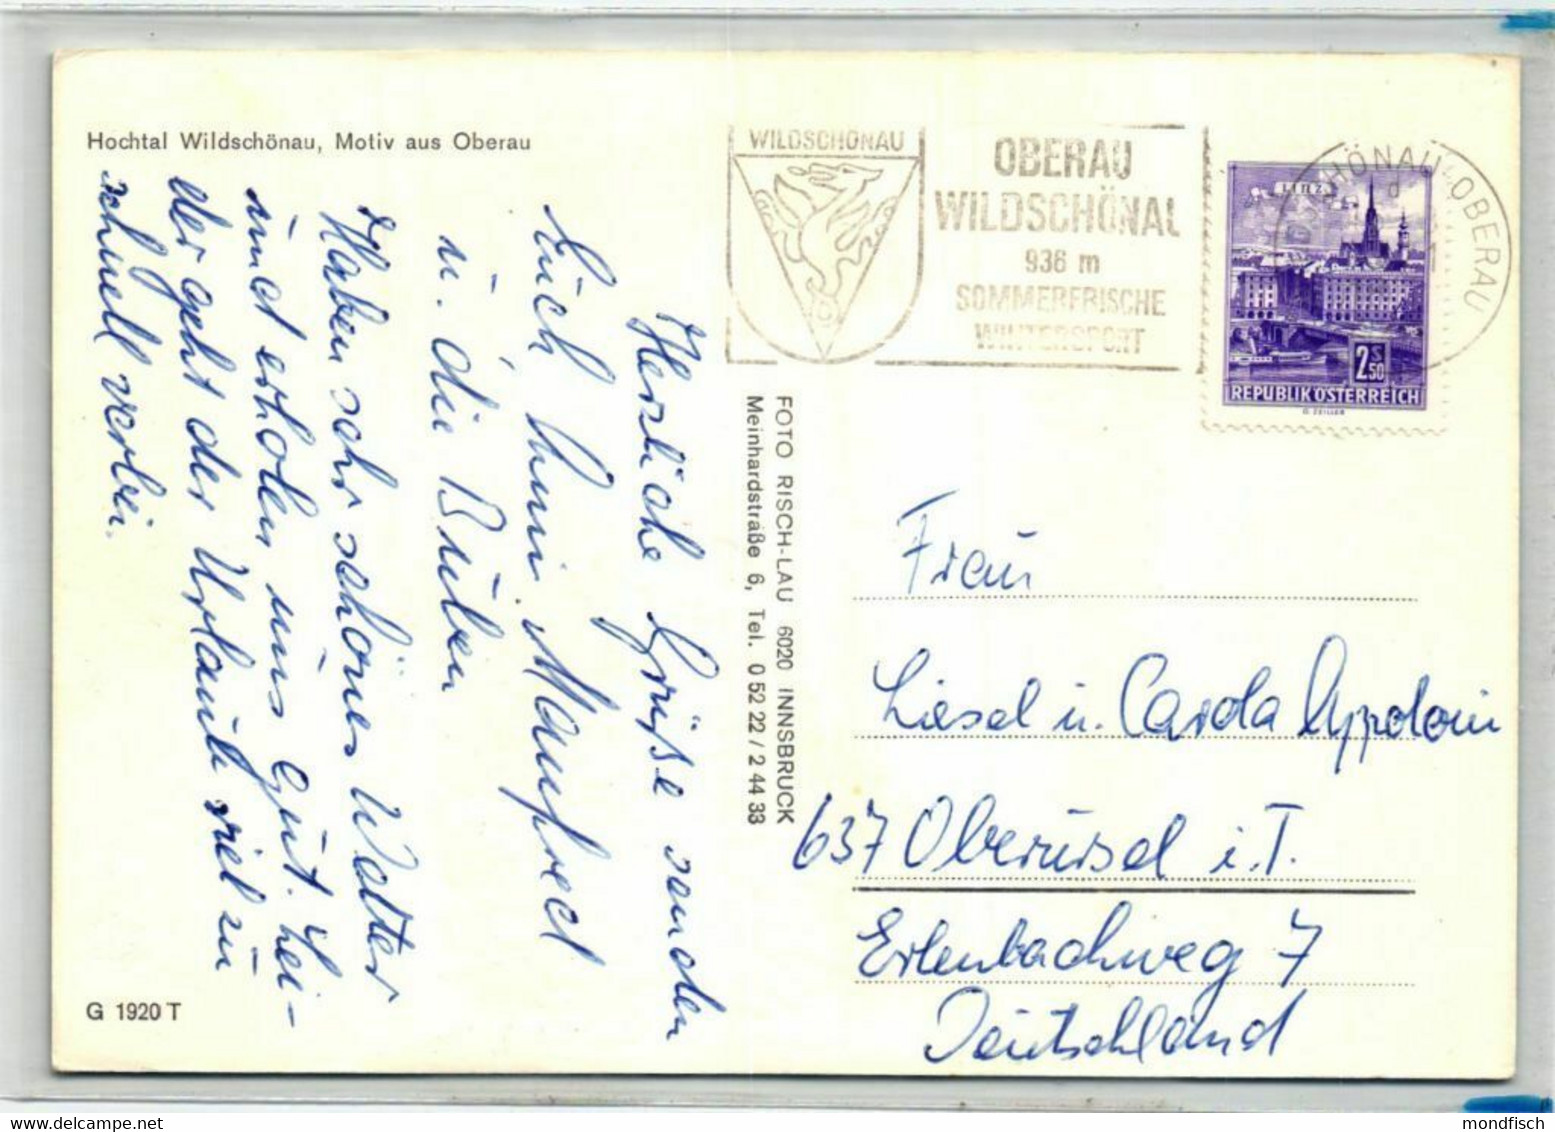 Hochtal Wildschönau, Motiv aus Oberau
WILDSCHÖNAU
OBERAU
WILDSCHÖNAU
936 m
SOMMERFRISCHE
WINTERSPORT
WILDSCHÖNAU-OBERAU
d
LINZ
2 S 50
REPUBLIK ÖSTERREICH
G. ZEILLER
Herzliche Grüße senden
Euch Anni, Manfred
u. die Buben
Haben sehr schönes Wetter
und erholen uns gut. Lei-
der geht der Urlaub viel zu
schnell vorbei.
FOTO RISCH-LAU 6020 INNSBRUCK
Meinhardstraße 6, Tel. 0 52 22 / 2 44 33
Frau
Liesel u. Carola Appoloni
637 Oberursel i. T.
Erlenbachweg 7
Deutschland
G 1920 T
mondfisch